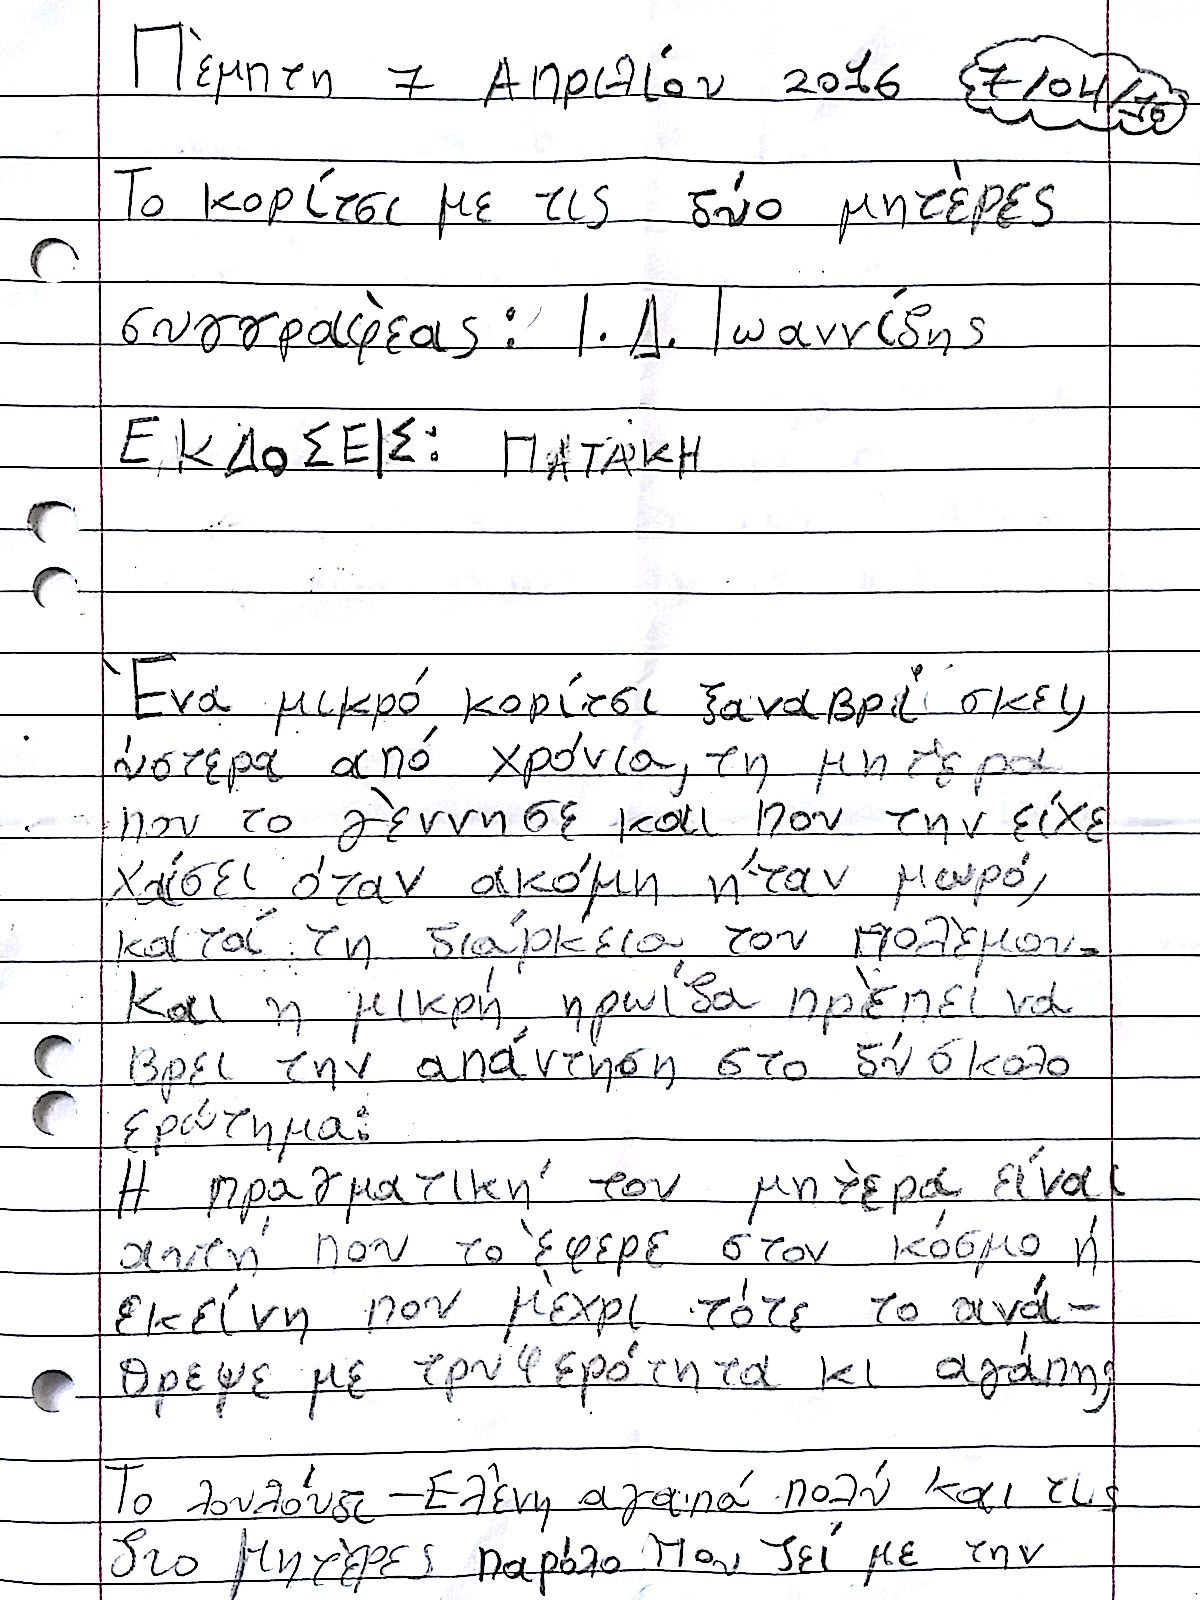 Πέμπτη 7 Απριλίου 2016 7/04/16
Το κορίτσι με τις δύο μητέρες
συγγραφέας: Ι. Δ. Ιωαννίδης
ΕΚΔΟΣΕΙΣ: ΠΑΤΑΚΗ
Ένα μικρό κορίτσι ξαναβρίσκει,
ύστερα από χρόνια, τη μητέρα
που το γέννησε και που την είχε
χάσει όταν ακόμη ήταν μωρό,
κατά τη διάρκεια του πολέμου.
Και η μικρή ηρωίδα πρέπει να
βρει την απάντηση στο δύσκολο
ερώτημα:
Η πραγματική του μητέρα είναι
αυτή που το έφερε στον κόσμο ή
εκείνη που μέχρι τότε το ανά-
θρεψε με τρυφερότητα κι αγάπη;
Το λουλούδι - Ελένη αγαπά πολύ και τις
δυο μητέρες παρόλο που ζεί με την